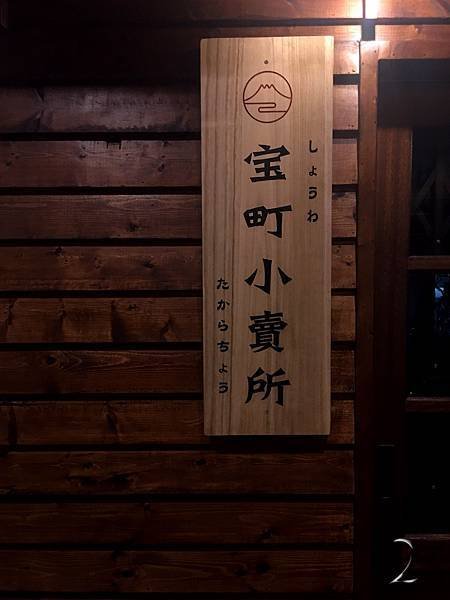 しょうわ
宝町小賣所
たからちょう
2